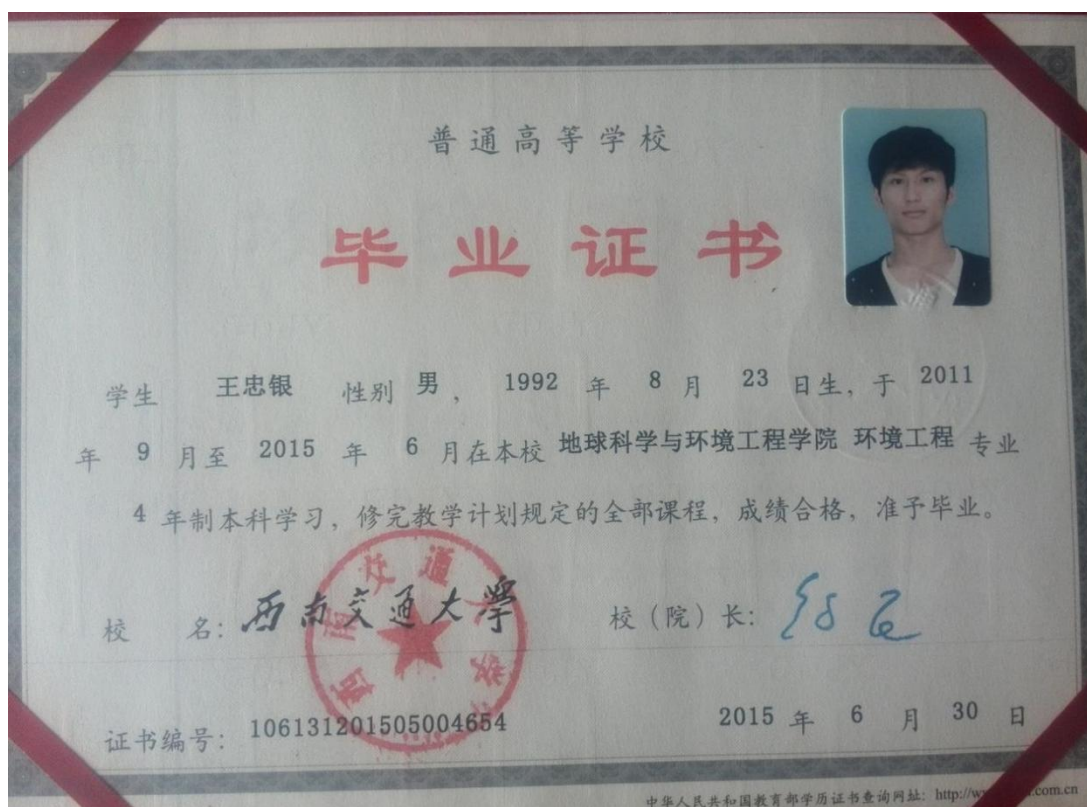 普通高等学校
毕业证书
学生 王忠银 性别 男, 1992 年 8 月 23 日生, 于 2011
年 9 月至 2015 年 6 月在本校 地球科学与环境工程学院 环境工程 专业
4 年制本科学习, 修完教学计划规定的全部课程, 成绩合格, 准予毕业。
校 名: 西南交通大學
西南交通大学
校（院）长:
证书编号: 106131201505004654
2015 年 6 月 30 日
中华人民共和国教育部学历证书查询网址: http://w .com.cn